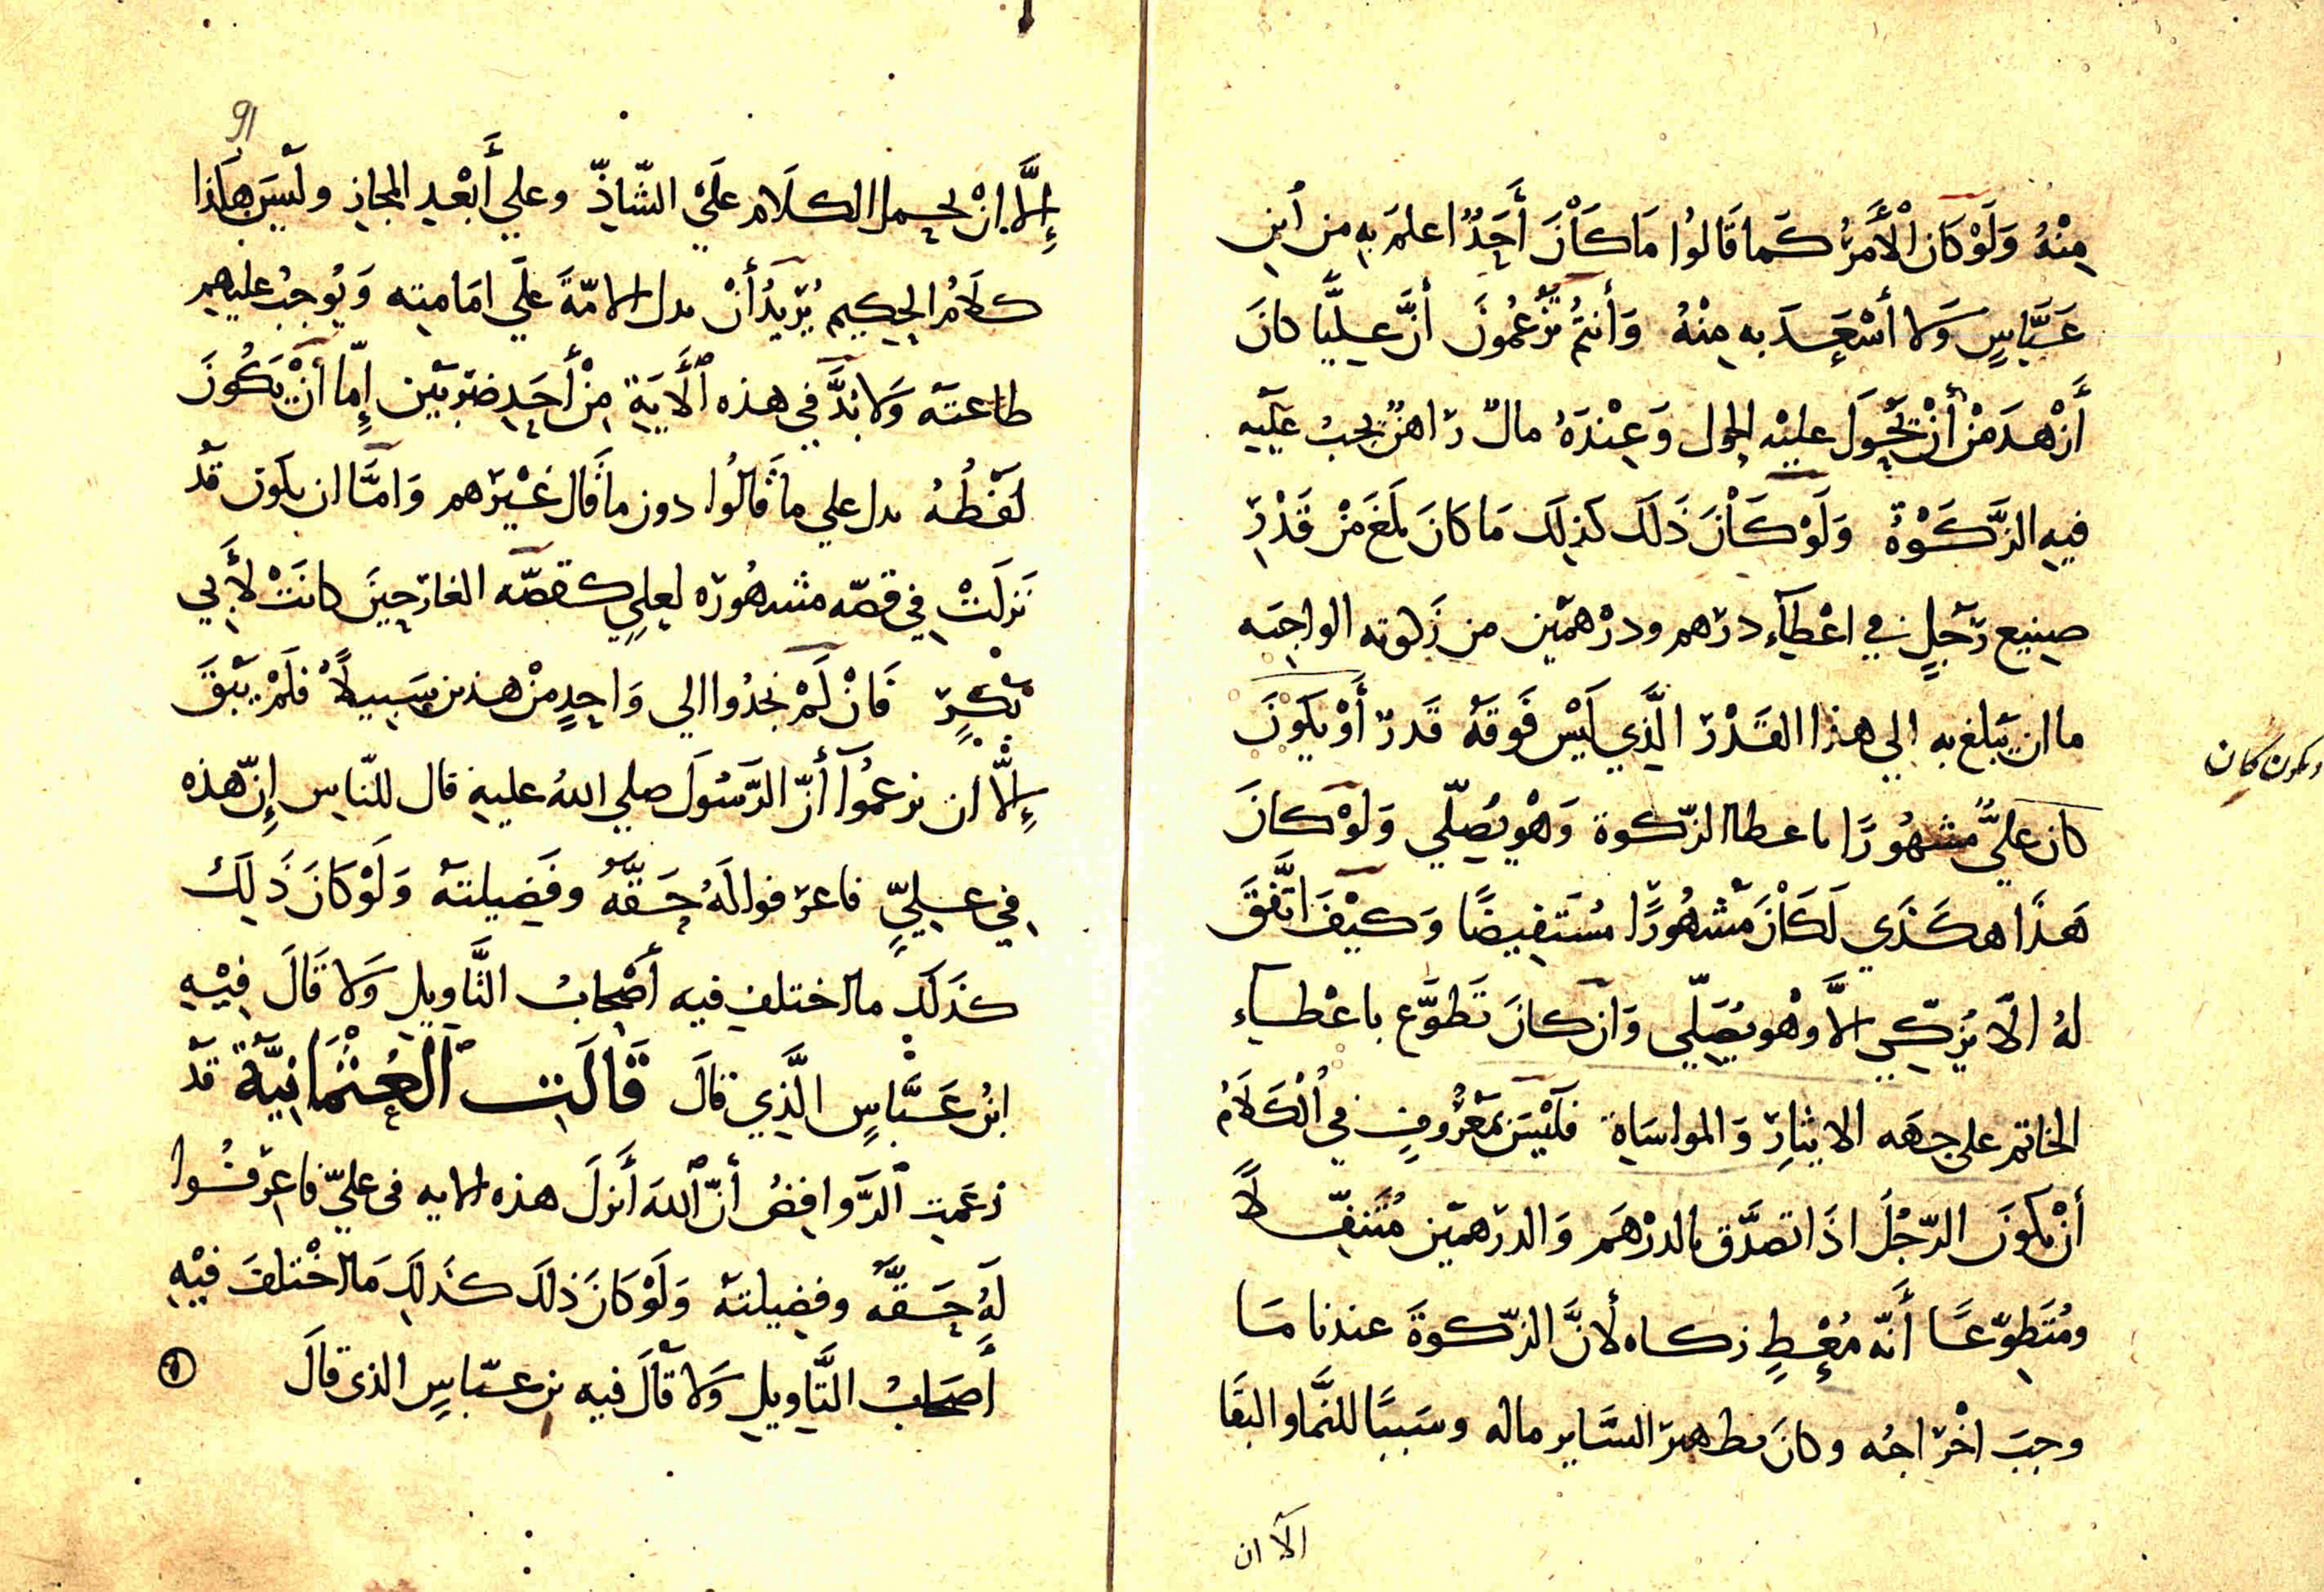 مِنْهُ وَلَوْ كَانَ الْأَمْرُ كَمَا قَالُوا مَا كَانَ أَحَدٌ اعلمَ بِهِ مِن ابنِ
عَبَّاسٍ وَلا أَسْعَدَ به مِنْهُ وَأَنتُمْ تَزْعُمُونَ أَنَّ عَلِيًّا كانَ
أَزْهَدَ مَنْ أَنْ يَحُولَ عليْه الحول وَعِنْدَهُ مالٌ رَاهنٌ يجبُ عليه
فيهِ الزَّكَوٰةُ وَلَوْ كَانَ ذَلكَ كَذِلكَ مَا كانَ بَلَغَ مَنْ قَدْرِ
صنيع رَجَلٍ في اعْطَآءِ دِرْهم ودرْهمَيْن من زَكوته الواجبَه
ما ان يَبلغ به الي هذا القَدْرَ الَّذِي لَيْسَ فَوقَهُ قَدرٌ أَوْ يَكُونَ
ويكون كان
كان عَليٌّ مَشهُورًا باعطا الزّكوة وَهْو يُصَلّي وَلَوْ كانَ
هَذَا هكَذَي لَكَانَ مَشْهُورًا مُسْتَفِيضًا وَكيْفَ اتَّفَقَ
لهُ الَّا يُزَكِّي الَّا وَهْو يُصَلّي وَان كانَ تَطَوَّع باعْطَاءِ
الخاتم على جهَه الايثارِ وَالمواسَاةِ فلَيْسَ بمَعْرُوفٍ في الْكَلَامُ
أَنْ يكونَ الرّجُلُ اذَا تصدَّق بالدرْهَم وَالدرهمَيْن مُتَنَفِّلًا
ومُتَطَوّعًا أَنَّه مُعْطٍ زكاه لأَنَّ الزّكوةَ عندنا مَا
وجبَ اخْرَاجُه وكانَ مطهرَا لسَّاير ماله وسَببًا للنَّما والبقَا
الّا ان
91
إِلَّا انْ يحمل الكلَام علَيَ الشّاذّ وعلي أَبْعْدِ المجازِ ولَيْسَ هَاذا
كلَامُ الحكيم يُرِيدُ أَنْ يدل الامّةَ علَي امَامته وَيُوجِبُ عليهم
طاعتَه وَلا بُدَّ في هذه الأَيَةِ مِنْ أَحَدِ ضَربَيْن إِمّا أَنْ يَكُونَ
لَفْظُهُ يدل علي ما قَالُوا دون ما قَال غَيْرَهم وَامَّا ان يكون قَدْ
نَزلَتْ في قصّه مشهُورَه لعلِيٍ كقصَّه الغارَ حِينَ كانَتْ لأَبي
بَكْرٍ فَانْ لَمْ يجدُوا الي وَاحِدٍ مِنْ هذين سَبيلًا فلَمْ يَبْقَ
إِلَّا ان يزعمُوا أَنَّ الرَّسُولَ صلي اللهُ عليهِ قال للنّاسِ إِنّ هذه
في عليٍّ فاعرفوا لَهُ حَقَّهُ وفَضيلتَه وَلَوْ كانَ ذَلِكَ
كذَلكَ ما اختلف فيه أَصْحابُ التَّاويلِ وَلا قَالَ فيْهِ
ابْنُ عَبَّاسٍ الَّذِي قَالَ قَالَتِ الْعُثْمَانِيَّةُ قَدْ
زعَمَتِ الرَّوافِضُ أَنَّ اللهَ أَنزلَ هذه الايه في عليّ فاعرَفُوا
لَهُ حَقَّهُ وفضيلتَه وَلَوْ كانَ ذلكَ كذلك مَا اخْتلفَ فيْهِ
أَصحَابُ التَّاويلِ وَلا قَالَ فيه بن عبّاسٍ الذى قالَ